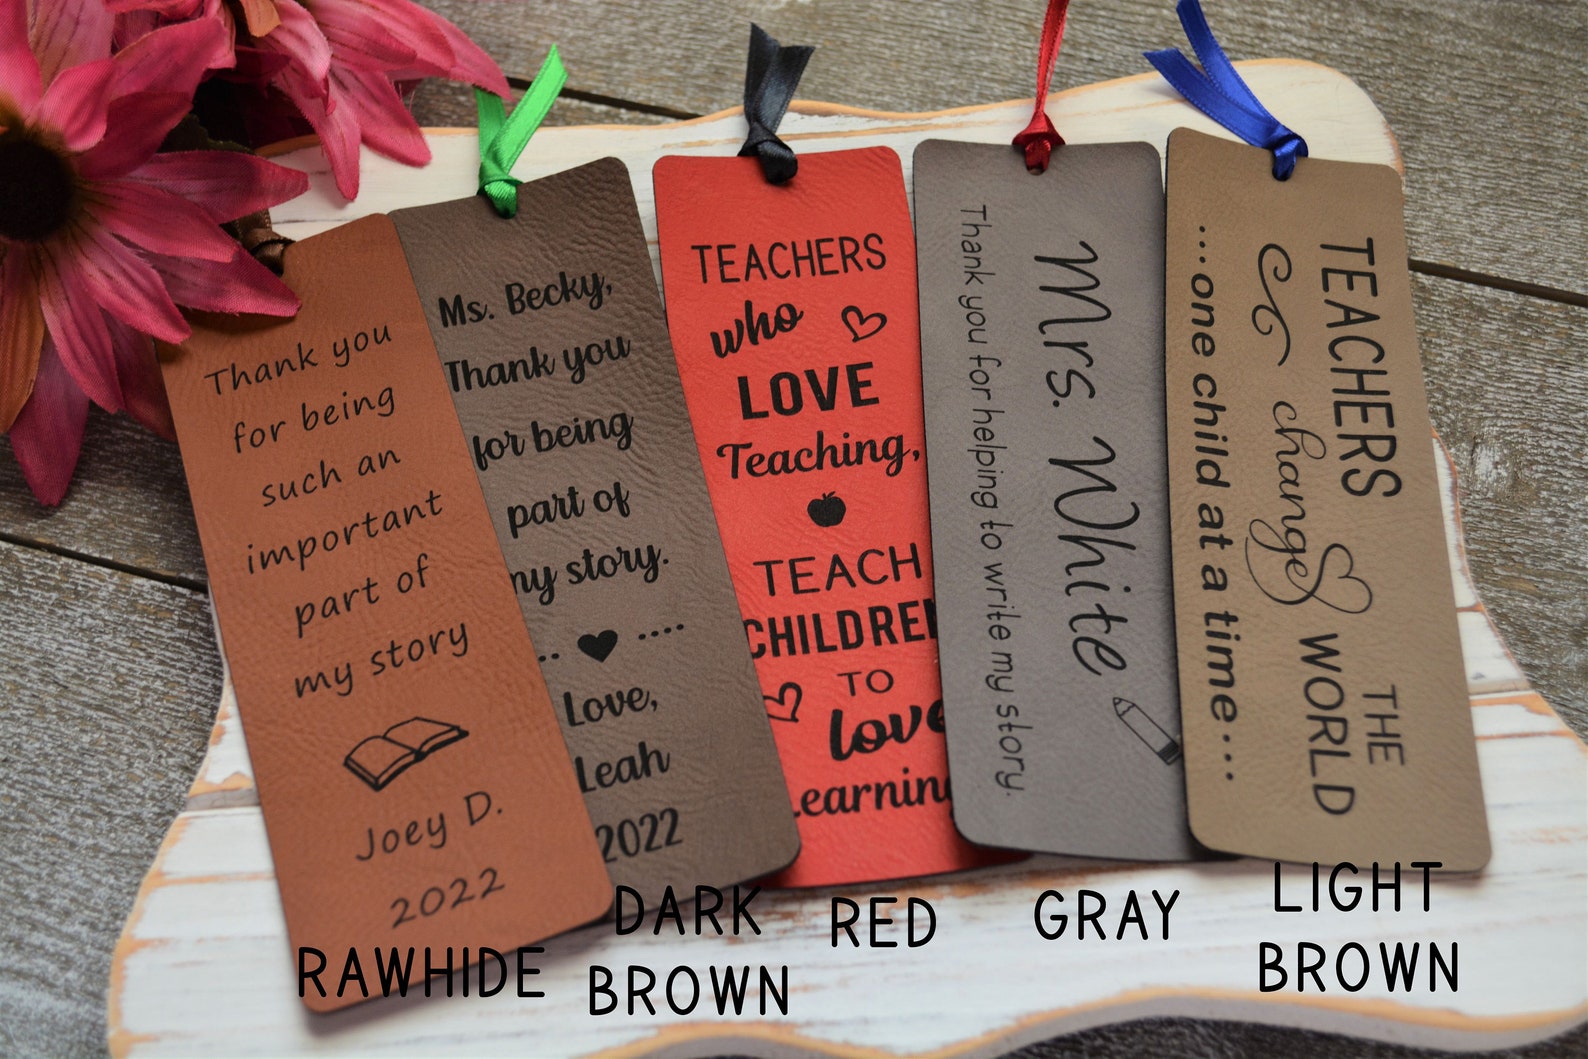 Thank you
for being
such an
important
part of
my story
Joey D.
2022
Ms. Becky,
Thank you
for being
part of
my story.
Love,
Leah
2022
TEACHERS
who
LOVE
Teaching,
TEACH
CHILDREN
TO
love
Learning
Mrs. White
Thank you for helping to write my story.
TEACHERS
change
THE
WORLD
...one child at a time...
RAWHIDE
DARK
BROWN
RED
GRAY
LIGHT
BROWN